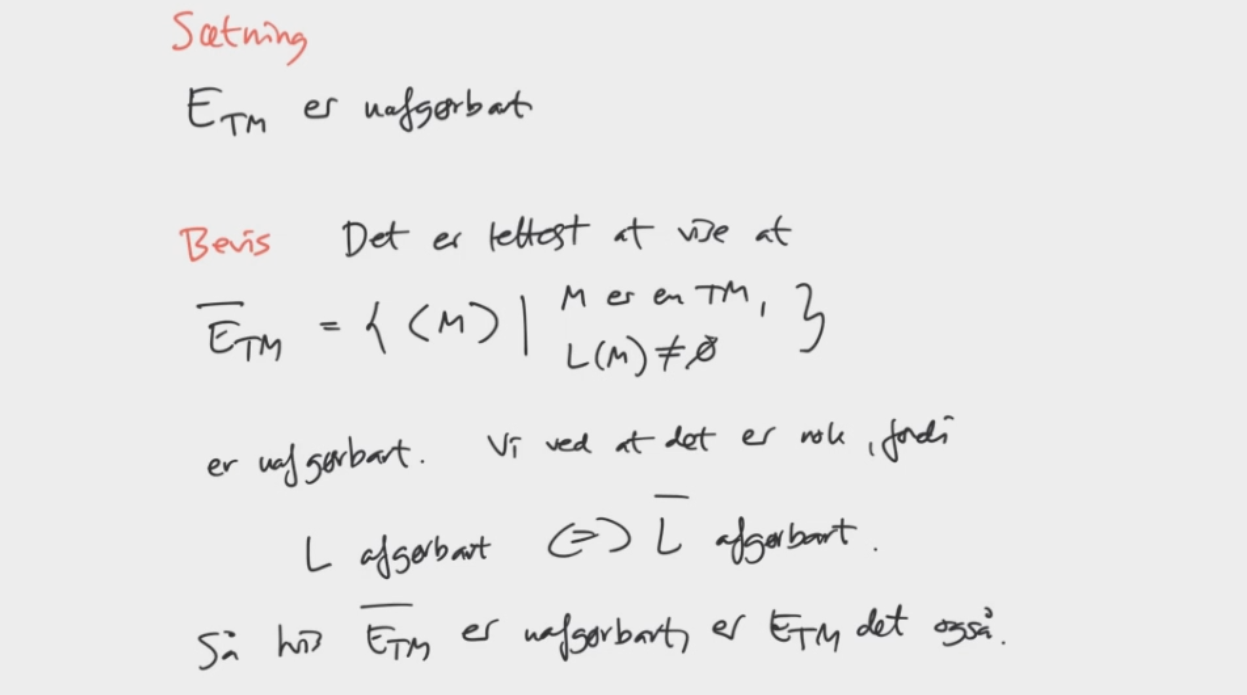 Sætning
E_TM er uafgørbart
Bevis Det er lettest at vise at
\overline{E_TM} = { ⟨M⟩ | M er en TM, L(M) ≠ ∅ }
er uafgørbart. Vi ved at det er nok, fordi
L afgørbart ⇔ \overline{L} afgørbart.
Så hvis \overline{E_TM} er uafgørbart, er E_TM det også.